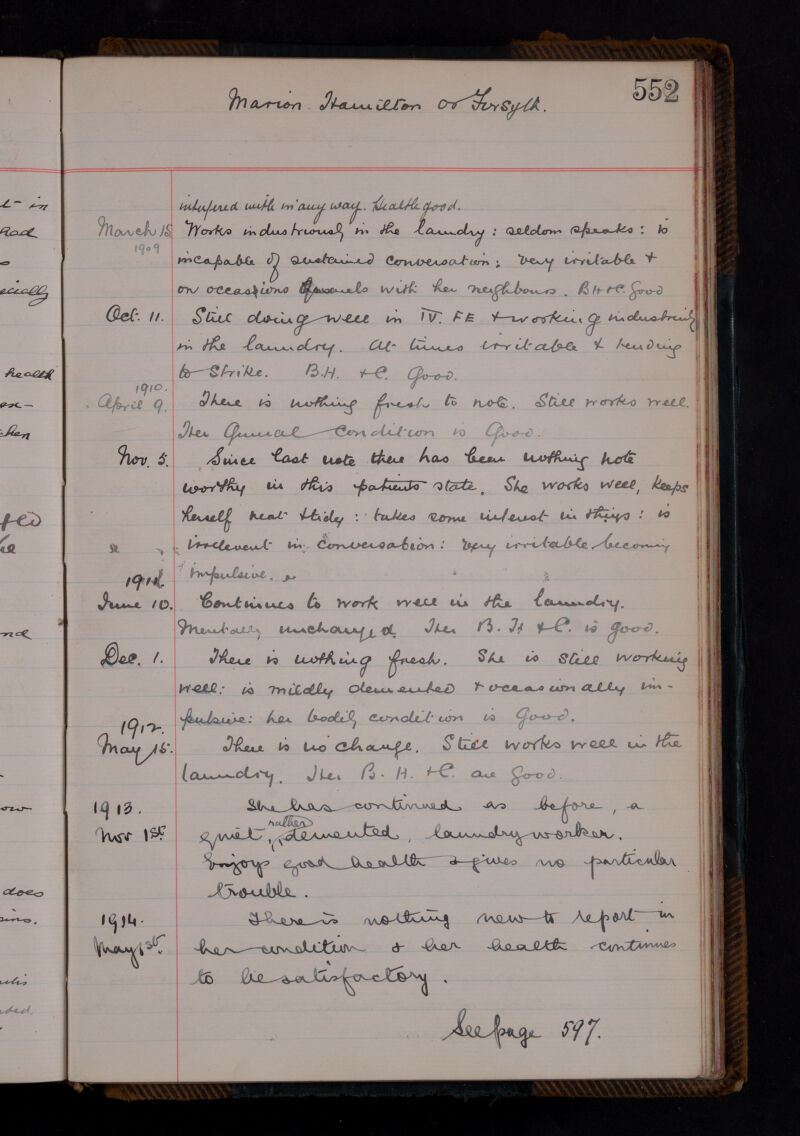 552
Marion Hamilton or Forsyth.
interfered with in any way. Health good.
March 15 Works industriously in the laundry: seldom speaks: is
1909
incapable of sustained conversation; very irritable &
on occassions quarrels with her neighbours. B.H & C. Good
Oct. 11. Still doing well in IV. F E & working industriously
in the laundry. At times irritable & tending
to strike. B.H. & C. Good.
1910.
April 9. There is nothing fresh to note. Still works well.
Her General condition is Good.
Nov. 5. Since last note there has been nothing note
worthy in this patients state. She works well, keeps
herself neat & tidy: takes some interest in things: is
irrelevent in conversation: very irritable becoming
impulsive.
1911
June 10. Continues to work well in the laundry.
Mentally unchanged. Her B. H & C. is good.
Dec. 1. There is nothing fresh. She is still working
well: is mildly demented & occasionally im-
pulsive: her bodily condition is Good.
1912.
May 15. There is no change. Still works well in the
laundry. Her B. H. & C. are Good.
1913. She has continued as before, a
Nov 1st. quiet, rather demented, laundry worker.
Enjoys good health & gives no particular
trouble.
1914. There is nothing new to report in
May 1st. her condition & her health continues
to be satisfactory.
See page 597.